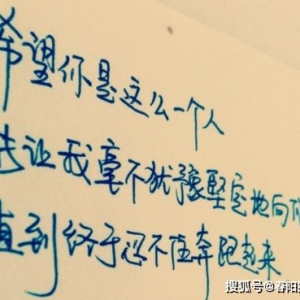 希望你是这么一个人
能让我毫不犹豫坚定地向你
直到终于忍不住奔跑起来
搜狐号@春阳